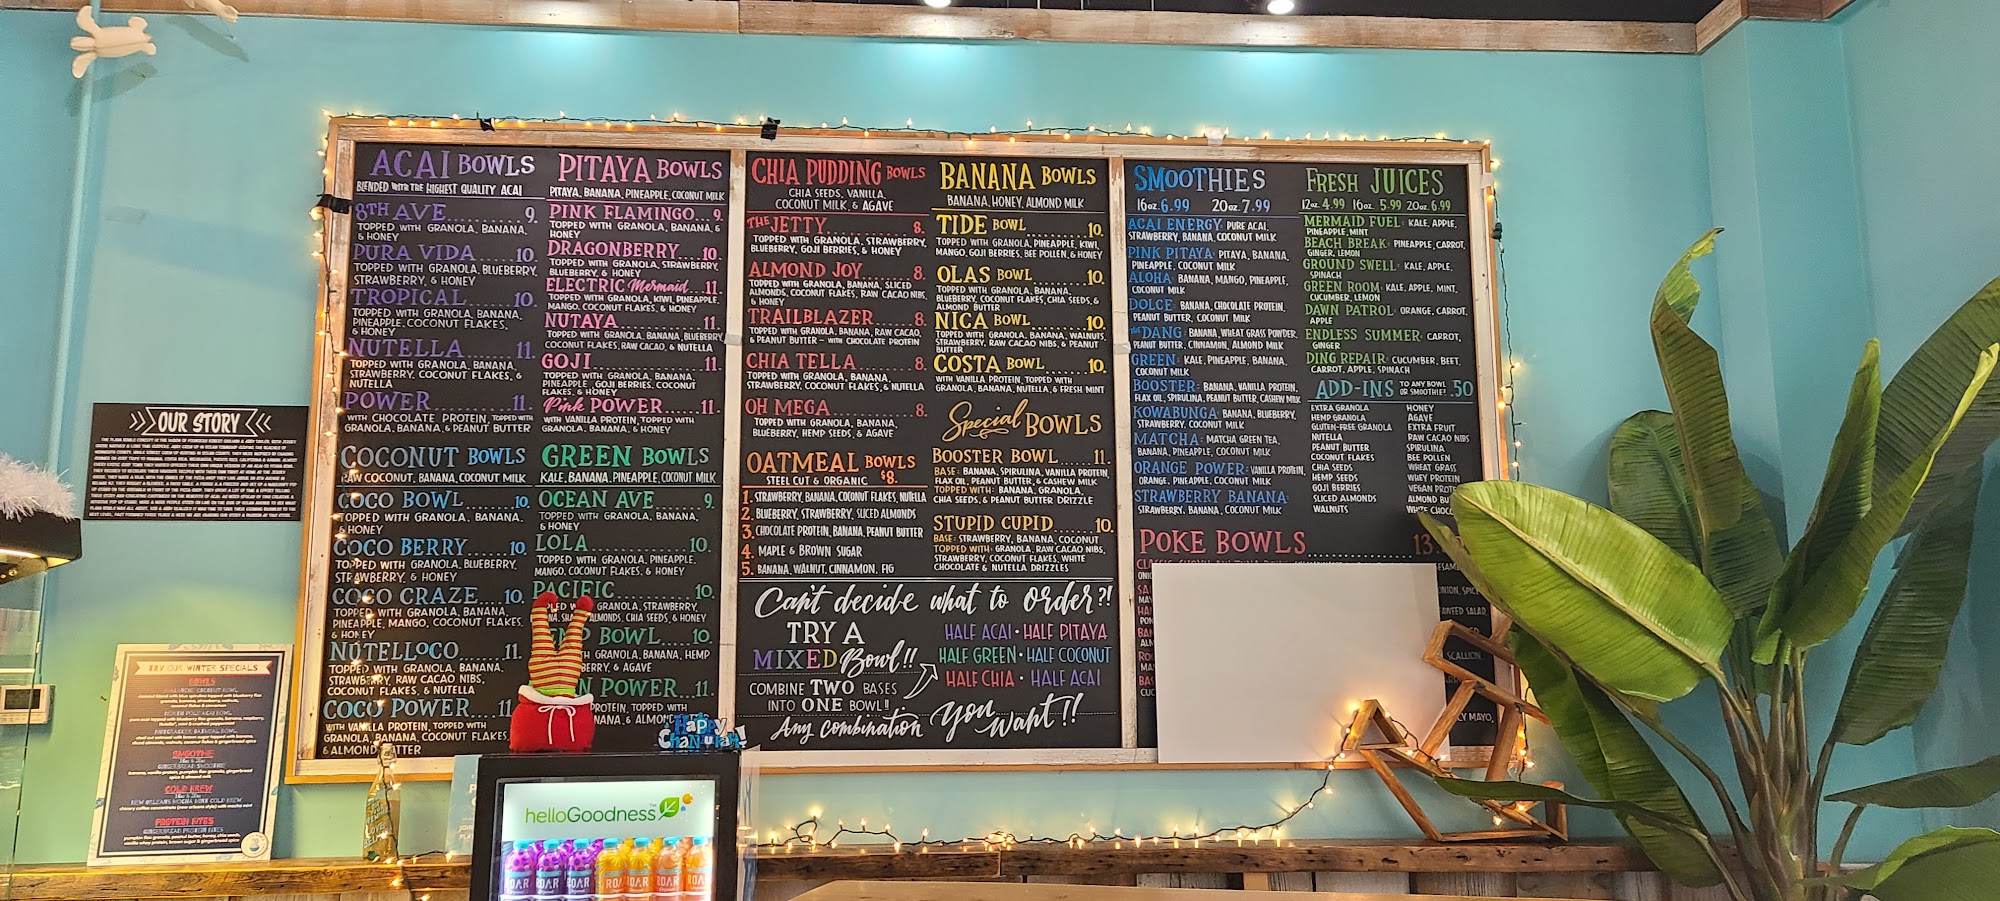 ACAI BOWLS
BLENDED WITH THE HIGHEST QUALITY ACAI
8TH AVE........9.
TOPPED WITH GRANOLA, BANANA,
& HONEY
PURA VIDA......10.
TOPPED WITH GRANOLA, BLUEBERRY,
STRAWBERRY, & HONEY
TROPICAL.......10.
TOPPED WITH GRANOLA, BANANA,
PINEAPPLE, COCONUT FLAKES,
& HONEY
NUTELLA........11.
TOPPED WITH GRANOLA, BANANA,
STRAWBERRY, COCONUT FLAKES, &
NUTELLA
POWER..........11.
WITH CHOCOLATE PROTEIN, TOPPED WITH
GRANOLA, BANANA, & PEANUT BUTTER
COCONUT BOWLS
RAW COCONUT, BANANA, COCONUT MILK
COCO BOWL......10.
TOPPED WITH GRANOLA, BANANA,
& HONEY
COCO BERRY.....10.
TOPPED WITH GRANOLA, BLUEBERRY,
STRAWBERRY, & HONEY
COCO CRAZE.....10.
TOPPED WITH GRANOLA, BANANA,
PINEAPPLE, MANGO, COCONUT FLAKES,
& HONEY
NUTELLOCO......11.
TOPPED WITH GRANOLA, BANANA,
STRAWBERRY, RAW CACAO NIBS,
COCONUT FLAKES, & NUTELLA
COCO POWER.....11
WITH VANILLA PROTEIN, TOPPED WITH
GRANOLA, BANANA, COCONUT FLAKES,
& ALMOND BUTTER
PITAYA BOWLS
PITAYA, BANANA, PINEAPPLE, COCONUT MILK
PINK FLAMINGO...9.
TOPPED WITH GRANOLA, BANANA, &
HONEY
DRAGONBERRY....10.
TOPPED WITH GRANOLA, STRAWBERRY,
BLUEBERRY, & HONEY
ELECTRIC Mermaid..11.
TOPPED WITH GRANOLA, KIWI, PINEAPPLE,
MANGO, COCONUT FLAKES, & HONEY
NUTAYA.........11.
TOPPED WITH GRANOLA, BANANA, BLUEBERRY
COCONUT FLAKES, RAW CACAO, & NUTELLA
GOJI...........11.
TOPPED WITH GRANOLA, BANANA,
PINEAPPLE, GOJI BERRIES, COCONUT
FLAKES, & HONEY
Pink POWER.....11.
WITH VANILLA PROTEIN, TOPPED WITH
GRANOLA, BANANA, & HONEY
GREEN BOWLS
KALE, BANANA, PINEAPPLE, COCONUT MILK
OCEAN AVE......9.
TOPPED WITH GRANOLA, BANANA,
& HONEY
LOLA...........10.
TOPPED WITH GRANOLA, PINEAPPLE,
MANGO, COCONUT FLAKES, & HONEY
PACIFIC........10.
GRANOLA, STRAWBERRY,
ALMONDS, CHIA SEEDS, & HONEY
BOWL....10.
GRANOLA, BANANA, HEMP
& AGAVE
POWER...11.
PROTEIN, TOPPED WITH
& ALMOND
CHIA PUDDING BOWLS
CHIA SEEDS, VANILLA,
COCONUT MILK, & AGAVE
THE JETTY......8.
TOPPED WITH GRANOLA, STRAWBERRY,
BLUEBERRY, GOJI BERRIES, & HONEY
ALMOND JOY.....8.
TOPPED WITH GRANOLA, BANANA, SLICED
ALMONDS, COCONUT FLAKES, RAW CACAO NIBS,
& HONEY
TRAILBLAZER....8.
TOPPED WITH GRANOLA, BANANA, RAW CACAO,
& PEANUT BUTTER - WITH CHOCOLATE PROTEIN
CHIA TELLA.....8.
TOPPED WITH GRANOLA, BANANA,
STRAWBERRY, COCONUT FLAKES, & NUTELLA
OH MEGA........8.
TOPPED WITH GRANOLA, BANANA,
BLUEBERRY, HEMP SEEDS, & AGAVE
OATMEAL BOWLS
STEEL CUT & ORGANIC $8.
1. STRAWBERRY, BANANA, COCONUT FLAKES, NUTELLA
2. BLUEBERRY, STRAWBERRY, SLICED ALMONDS
3. CHOCOLATE PROTEIN, BANANA, PEANUT BUTTER
4. MAPLE & BROWN SUGAR
5. BANANA, WALNUT, CINNAMON, FIG
BANANA BOWLS
BANANA, HONEY, ALMOND MILK
TIDE BOWL......10.
TOPPED WITH GRANOLA, PINEAPPLE, KIWI,
MANGO, GOJI BERRIES, BEE POLLEN, & HONEY
OLAS BOWL......10.
TOPPED WITH GRANOLA, BANANA,
BLUEBERRY, COCONUT FLAKES, CHIA SEEDS, &
ALMOND BUTTER
NICA BOWL......10.
TOPPED WITH GRANOLA, BANANA, WALNUTS,
STRAWBERRY, RAW CACAO NIBS, & PEANUT
BUTTER
COSTA BOWL.....10.
WITH VANILLA PROTEIN, TOPPED WITH
GRANOLA, BANANA, NUTELLA, & FRESH MINT
Special BOWLS
BOOSTER BOWL...11.
BASE: BANANA, SPIRULINA, VANILLA PROTEIN,
FLAX OIL, PEANUT BUTTER, & CASHEW MILK
TOPPED WITH: BANANA, GRANOLA,
CHIA SEEDS, & PEANUT BUTTER DRIZZLE
STUPID CUPID...10.
BASE: STRAWBERRY, BANANA, COCONUT
TOPPED WITH: GRANOLA, RAW CACAO NIBS,
STRAWBERRY, COCONUT FLAKES, WHITE
CHOCOLATE & NUTELLA DRIZZLES
Can't decide what to order?!
TRY A
MIXED Bowl!!
COMBINE TWO BASES
INTO ONE BOWL!!
HALF ACAI • HALF PITAYA
HALF GREEN • HALF COCONUT
HALF CHIA • HALF ACAI
Any combination you want!!
SMOOTHIES
16oz. 6.99 20oz. 7.99
ACAI ENERGY: PURE ACAI,
STRAWBERRY, BANANA, COCONUT MILK
PINK PITAYA: PITAYA, BANANA,
PINEAPPLE, COCONUT MILK
ALOHA: BANANA, MANGO, PINEAPPLE,
COCONUT MILK
DOLCE: BANANA, CHOCOLATE PROTEIN,
PEANUT BUTTER, COCONUT MILK
THE DANG: BANANA, WHEAT GRASS POWDER,
PEANUT BUTTER, CINNAMON, ALMOND MILK
GREEN: KALE, PINEAPPLE, BANANA,
COCONUT MILK
BOOSTER: BANANA, VANILLA PROTEIN,
FLAX OIL, SPIRULINA, PEANUT BUTTER, CASHEW MILK
KOWABUNGA: BANANA, BLUEBERRY,
STRAWBERRY, COCONUT MILK
MATCHA: MATCHA GREEN TEA,
BANANA, PINEAPPLE, COCONUT MILK
ORANGE POWER: VANILLA PROTEIN,
ORANGE, PINEAPPLE, COCONUT MILK
STRAWBERRY BANANA:
STRAWBERRY, BANANA, COCONUT MILK
FRESH JUICES
12oz. 4.99 16oz. 5.99 20oz. 6.99
MERMAID FUEL: KALE, APPLE,
PINEAPPLE, MINT
BEACH BREAK: PINEAPPLE, CARROT,
GINGER, LEMON
GROUND SWELL: KALE, APPLE,
SPINACH
GREEN ROOM: KALE, APPLE, MINT,
CUCUMBER, LEMON
DAWN PATROL: ORANGE, CARROT,
APPLE
ENDLESS SUMMER: CARROT,
GINGER
DING REPAIR: CUCUMBER, BEET,
CARROT, APPLE, SPINACH
ADD-INS TO ANY BOWL OR SMOOTHIE! .50
EXTRA GRANOLA
HEMP GRANOLA
GLUTEN-FREE GRANOLA
NUTELLA
PEANUT BUTTER
COCONUT FLAKES
CHIA SEEDS
HEMP SEEDS
GOJI BERRIES
SLICED ALMONDS
WALNUTS
HONEY
AGAVE
EXTRA FRUIT
RAW CACAO NIBS
SPIRULINA
BEE POLLEN
WHEAT GRASS
WHEY PROTEIN
VEGAN PROTEIN
ALMOND
WHITE
POKE BOWLS
13.
OUR STORY
TRY OUR WINTER SPECIALS
BOWLS
SMOOTHIE
GINGERBREAD SMOOTHIE
banana, vanilla protein, pumpkin flax granola, gingerbread
spice & almond milk
COLD BREW
NEW ORLEANS MOCHA MINT COLD BREW
PROTEIN BITES
GINGERBREAD PROTEIN BITES
pumpkin flax granola, peanut butter, honey, chia seeds,
vanilla whey protein, brown sugar & gingerbread spice
Happy
Chanukah!
helloGoodness™
ROAR
ROAR
ROAR
ROAR
ROAR
ROAR